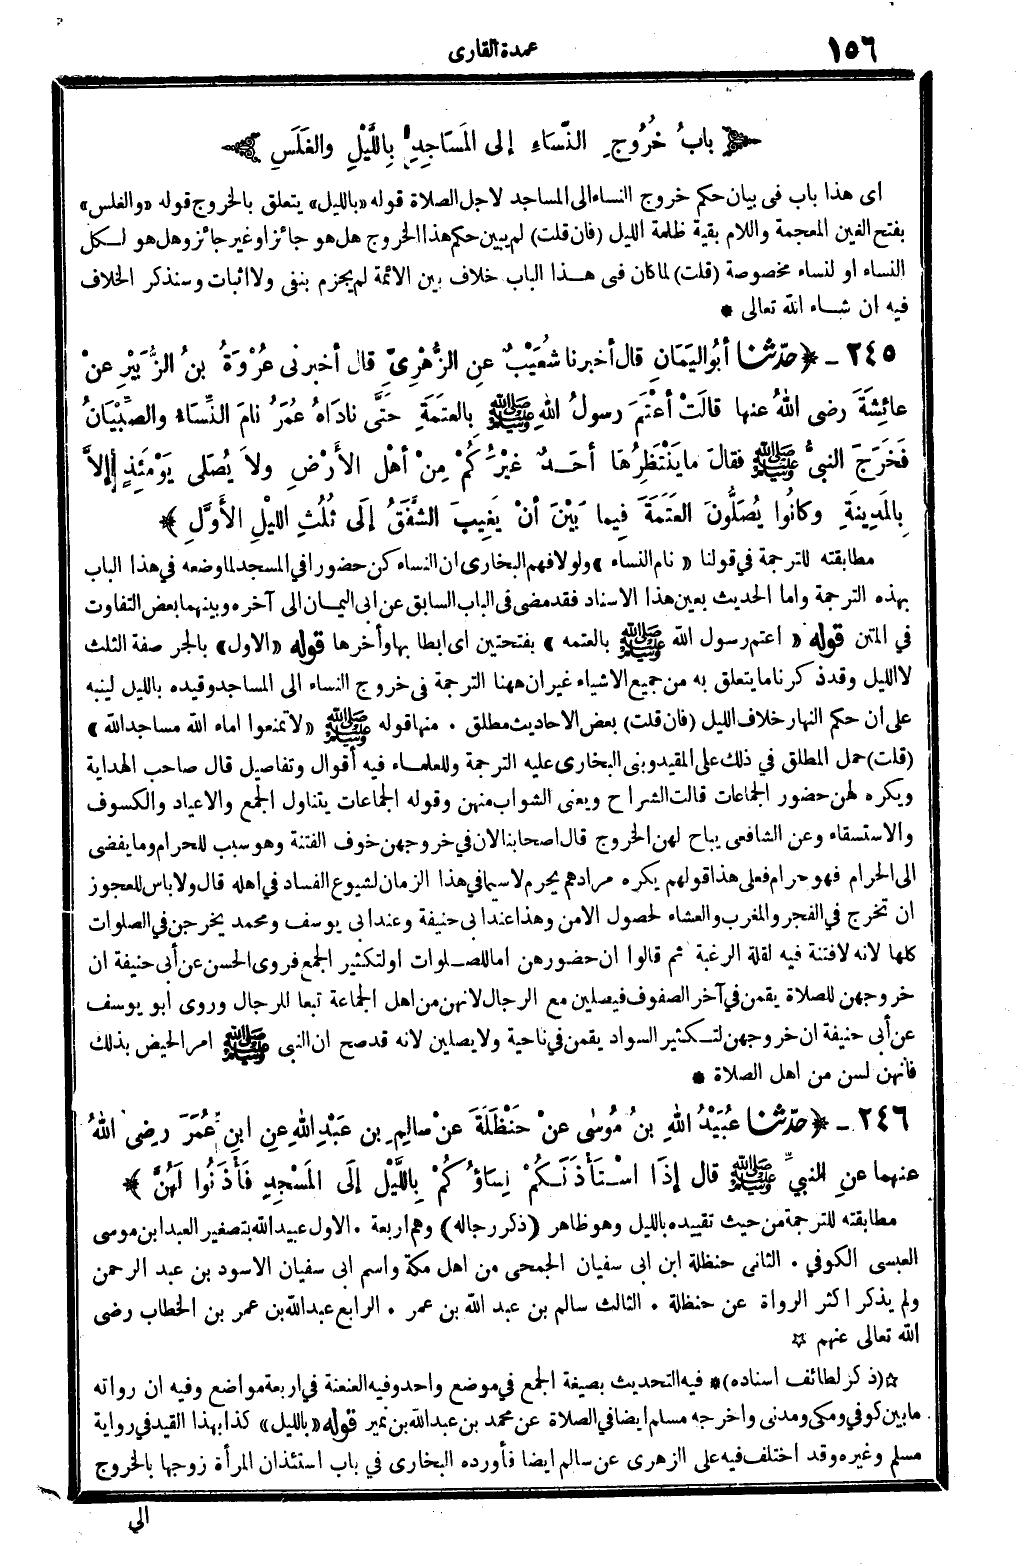 ١٥٦
عمدة القارى
باب خُرُوجِ النِّسَاءِ إلى المَسَاجِدِ بِاللَّيْلِ والغَلَسِ
اى هذا باب فى بيان حكم خروج النساء الى المساجد لاجل الصلاة قوله «بالليل» يتعلق بالخروج قوله «والغلس»
بفتح الغين المعجمة واللام بقية ظلمة الليل (فان قلت) لم يبين حكم هذا الخروج هل هو جائز او غير جائز وهل هو لكل
النساء او لنساء مخصوصة (قلت) لما كان فى هذا الباب خلاف بين الائمة لم يجزم بنفى ولا اثبات وسنذكر الخلاف
فيه ان شاء الله تعالى *
٢٤٥ - ﴿حدّثنا أبُو اليَمَانِ قال أخبرنا شُعَيْبٌ عنِ الزُّهْرِىِّ قال أخبرنى عُرْوَةُ بنُ الزُّبَيْرِ عنْ
عائِشَةَ رضى اللهُ عنها قالَتْ أعْتَمَ رسولُ اللهِ ﷺ بِالعتَمَةِ حَتَّى نادَاهُ عُمَرُ نامَ النِّسَاءُ والصِّبْيَانُ
فَخَرَجَ النبىُّ ﷺ فقالَ ما يَنْتَظِرُهَا أحَدٌ غيْرُكُمْ مِنْ أهْلِ الأَرْضِ ولاَ يُصَلى يَوْمَئِذٍ إِلاَّ
بِالمَدِينَةِ وكانُوا يُصَلُّونَ العَتَمَةَ فِيما بَيْنَ أنْ يَغِيبَ الشَّفَقُ إلَى ثُلُثِ الليْلِ الأَوَّلِ ﴾
مطابقته للترجمة في قولنا « نام النساء » ولولا فهم البخارى ان النساء كن حضورا في المسجد لما وضعه في هذا الباب
بهذه الترجمة واما الحديث بعين هذا الاسناد فقد مضى فى الباب السابق عن ابى اليمان الى آخره وبينهما بعض التفاوت
في المتن قوله « اعتم رسول الله ﷺ بالعتمه » بفتحتين اى ابطا بها وأخرها قوله «الاول» بالجر صفة الثلث
لا الليل وقد ذكرنا ما يتعلق به من جميع الاشياء غير ان ههنا الترجمة فى خروج النساء الى المساجد وقيده بالليل لينبه
على ان حكم النهار خلاف الليل (فان قلت) بعض الاحاديث مطلق . منها قوله ﷺ «لا تمنعوا اماء الله مساجد الله»
(قلت) حمل المطلق في ذلك على المقيد وبنى البخارى عليه الترجمة وللعلماء فيه أقوال وتفاصيل قال صاحب الهداية
ويكره لهن حضور الجماعات قالت الشراح ويعنى الشواب منهن وقوله الجماعات يتناول الجمع والاعياد والكسوف
والاستسقاء وعن الشافعى يباح لهن الخروج قال اصحابنا لان في خروجهن خوف الفتنة وهو سبب للحرام وما يفضى
الى الحرام فهو حرام فعلى هذا قولهم يكره مرادهم يحرم لاسيما في هذا الزمان لشيوع الفساد في اهله قال ولا باس للعجوز
ان تخرج في الفجر والمغرب والعشاء لحصول الامن وهذا عند ابى حنيفة وعند ابى يوسف ومحمد يخرجن في الصلوات
كلها لانه لا فتنة فيه لقلة الرغبة ثم قالوا ان حضورهن اما للصلوات او لتكثير الجمع فروى الحسن عن أبى حنيفة ان
خروجهن للصلاة يقمن في آخر الصفوف فيصلين مع الرجال لانهن من اهل الجماعة تبعا للرجال وروى ابو يوسف
عن أبى حنيفة ان خروجهن لتكثير السواد يقمن في ناحية ولا يصلين لانه قد صح ان النبى ﷺ امر الحيض بذلك
فانهن لسن من اهل الصلاة *
٢٤٦ - ﴿حدّثنا عُبَيْدُ اللهِ بنُ مُوسٰى عنْ حَنْظَلَةَ عنْ سالِمِ بن عَبْدِ اللهِ عنِ ابنِ عُمَرَ رضى اللهُ
عنهما عنِ النبيِّ ﷺ قال إذَا اسْتَأْذَنَكُمْ نِسَاؤُكُمْ بِاللَّيْلِ إلَى المَسْجِدِ فَأْذَنُوا لَهُنَّ ﴾
مطابقته للترجمة من حيث تقييده بالليل وهو ظاهر (ذكر رجاله) وهم اربعة . الاول عبيد الله بتصغير العبد ابن موسى
العبسى الكوفي . الثانى حنظلة ابن ابى سفيان الجمحى من اهل مكة واسم ابى سفيان الاسود بن عبد الرحمن
ولم يذكر اكثر الرواة عن حنظلة . الثالث سالم بن عبد الله بن عمر . الرابع عبد الله بن عمر بن الخطاب رضى
الله تعالى عنهم ☆
☆(ذكر لطائف اسناده)* فيه التحديث بصيغة الجمع في موضع واحد وفيه العنعنة في اربعة مواضع وفيه ان رواته
ما بين كوفي ومكى ومدنى واخرجه مسلم ايضا في الصلاة عن محمد بن عبد الله بن نمير قوله «بالليل» كذا بهذا القيد في رواية
مسلم وغيره وقد اختلف فيه على الزهرى عن سالم ايضا فأورده البخارى في باب استئذان المرأة زوجها بالخروج
الى